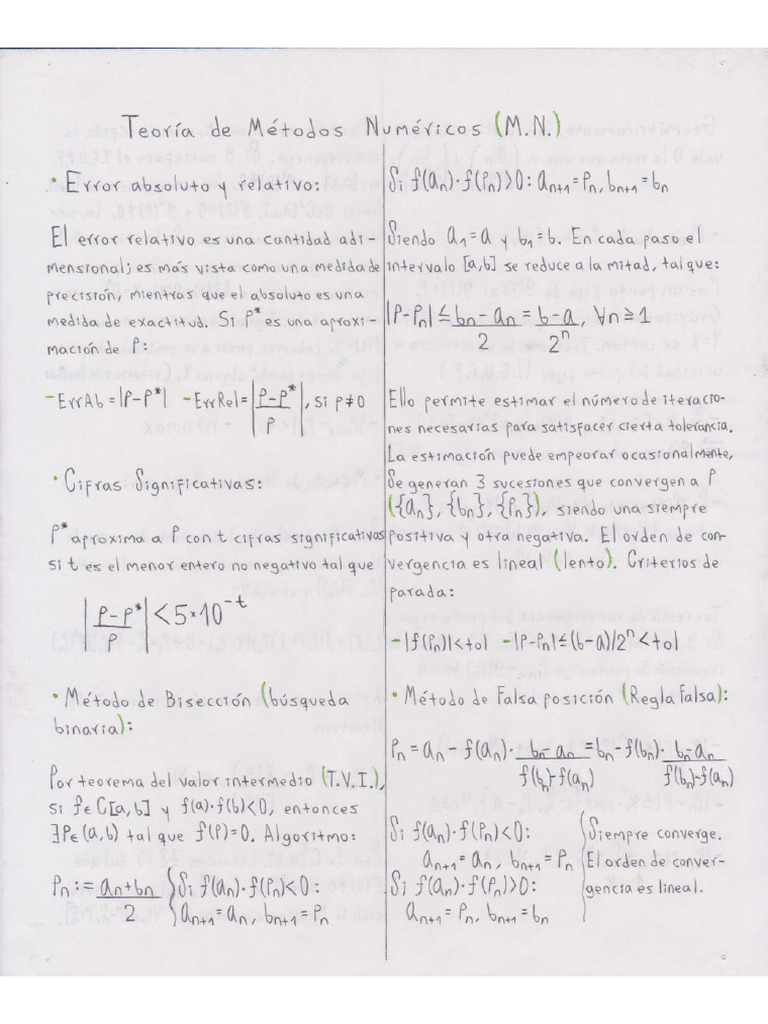 Teoría de Métodos Numéricos (M.N.)
• Error absoluto y relativo:
El error relativo es una cantidad adi-
mensional; es más vista como una medida de
precisión, mientras que el absoluto es una
medida de exactitud. Si P* es una aproxi-
mación de P:
-ErrAb = |P-P*| -ErrRel = |(P-P*)/P|, si P≠0
• Cifras Significativas:
P* aproxima a P con t cifras significativas
si t es el menor entero no negativo tal que
|(P-P*)/P| < 5*10^-t
• Método de Bisección (búsqueda
binaria):
Por teorema del valor intermedio (T.V.I.),
si f∈C[a,b] y f(a)·f(b)<0, entonces
∃P∈(a,b) tal que f(P)=0. Algoritmo:
Pn := (an+bn)/2 { Si f(an)·f(Pn)<0:
an+1 = an, bn+1 = Pn
Si f(an)·f(Pn)>0: an+1 = Pn, bn+1 = bn
Siendo a1=a y b1=b. En cada paso el
intervalo [a,b] se reduce a la mitad, tal que:
|P-Pn| ≤ (bn-an)/2 = (b-a)/2^n, ∀n≥1
Ello permite estimar el número de iteracio-
nes necesarias para satisfacer cierta tolerancia.
La estimación puede empeorar ocasionalmente,
Se generan 3 sucesiones que convergen a P
({an}, {bn}, {Pn}), siendo una siempre
positiva y otra negativa. El orden de con-
vergencia es lineal (lento). Criterios de
parada:
-|f(Pn)|<tol -|P-Pn|≤(b-a)/2^n<tol
• Método de Falsa posición (Regla Falsa):
Pn = an - f(an)·(bn-an)/(f(bn)-f(an)) = bn - f(bn)·(bn-an)/(f(bn)-f(an))
Si f(an)·f(Pn)<0:
an+1 = an, bn+1 = Pn
Si f(an)·f(Pn)>0:
an+1 = Pn, bn+1 = bn
{ Siempre converge.
El orden de conver-
gencia es lineal.